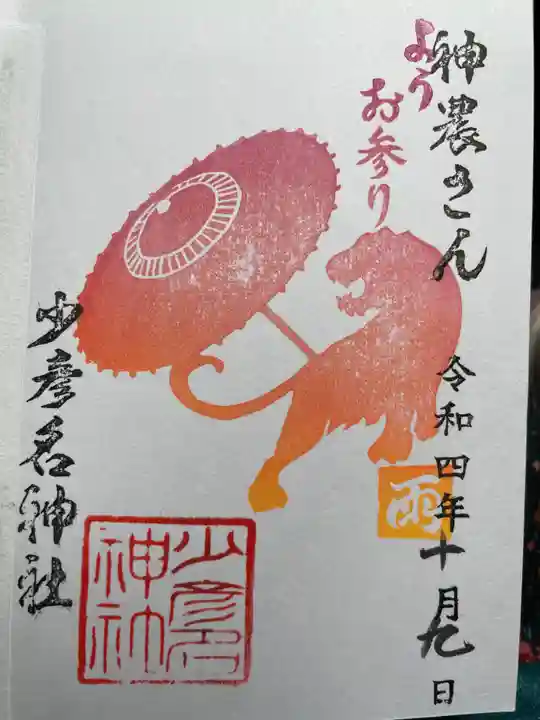 神農さん
令和四年十月九日
ようお参り
雨
少彦名神社
少彦名
神社